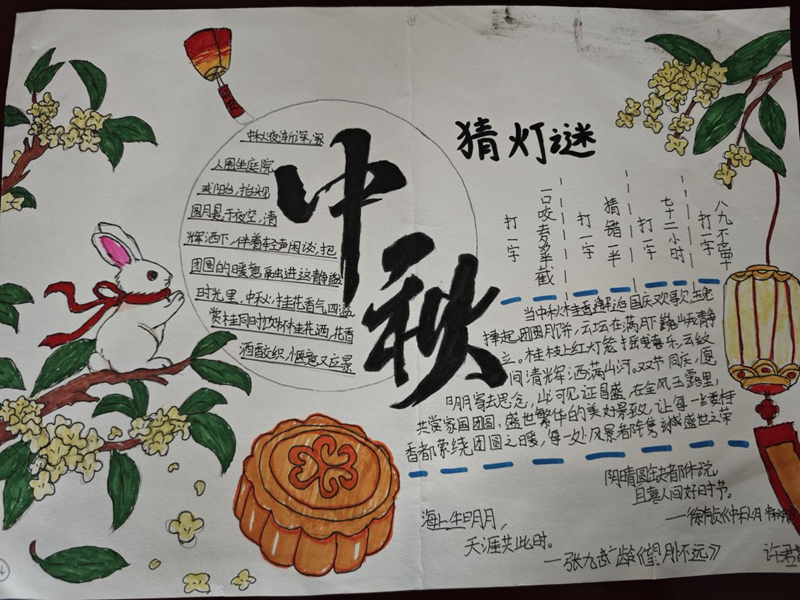 中秋夜渐深,家
人围坐庭院
或阳台,抬头
圆月悬于夜空,清
辉洒下,伴着轻声闲谈,把
团圆的暖意融进这静谧
时光里。中秋,桂花香气四溢
赏桂同时饮杯桂花酒,花香
酒香交织,惬意又应景
中秋
猜灯谜
八九不离
打一字
七十二小时
打一字
猜错一半
打一字
一口咬着
打一字
当中秋桂香邂逅国庆欢歌,玉兔
捧起团圆月饼,云坛在满月下巍峨静
立。桂枝上红灯笼摇曳喜乐,云纹
间清辉洒满山河。双节同庆,愿
明月寄去思念,山河见证昌盛,在金风玉露里,
共赏家国团圆,盛世繁华的美好景致,让每一缕桂
香都萦绕团圆之暖,每一处风景都隽
盛世之荣
阴晴圆缺都休说,
且喜人间好时节。
海上生明月,
天涯共此时。
一张九龄《望月怀远》